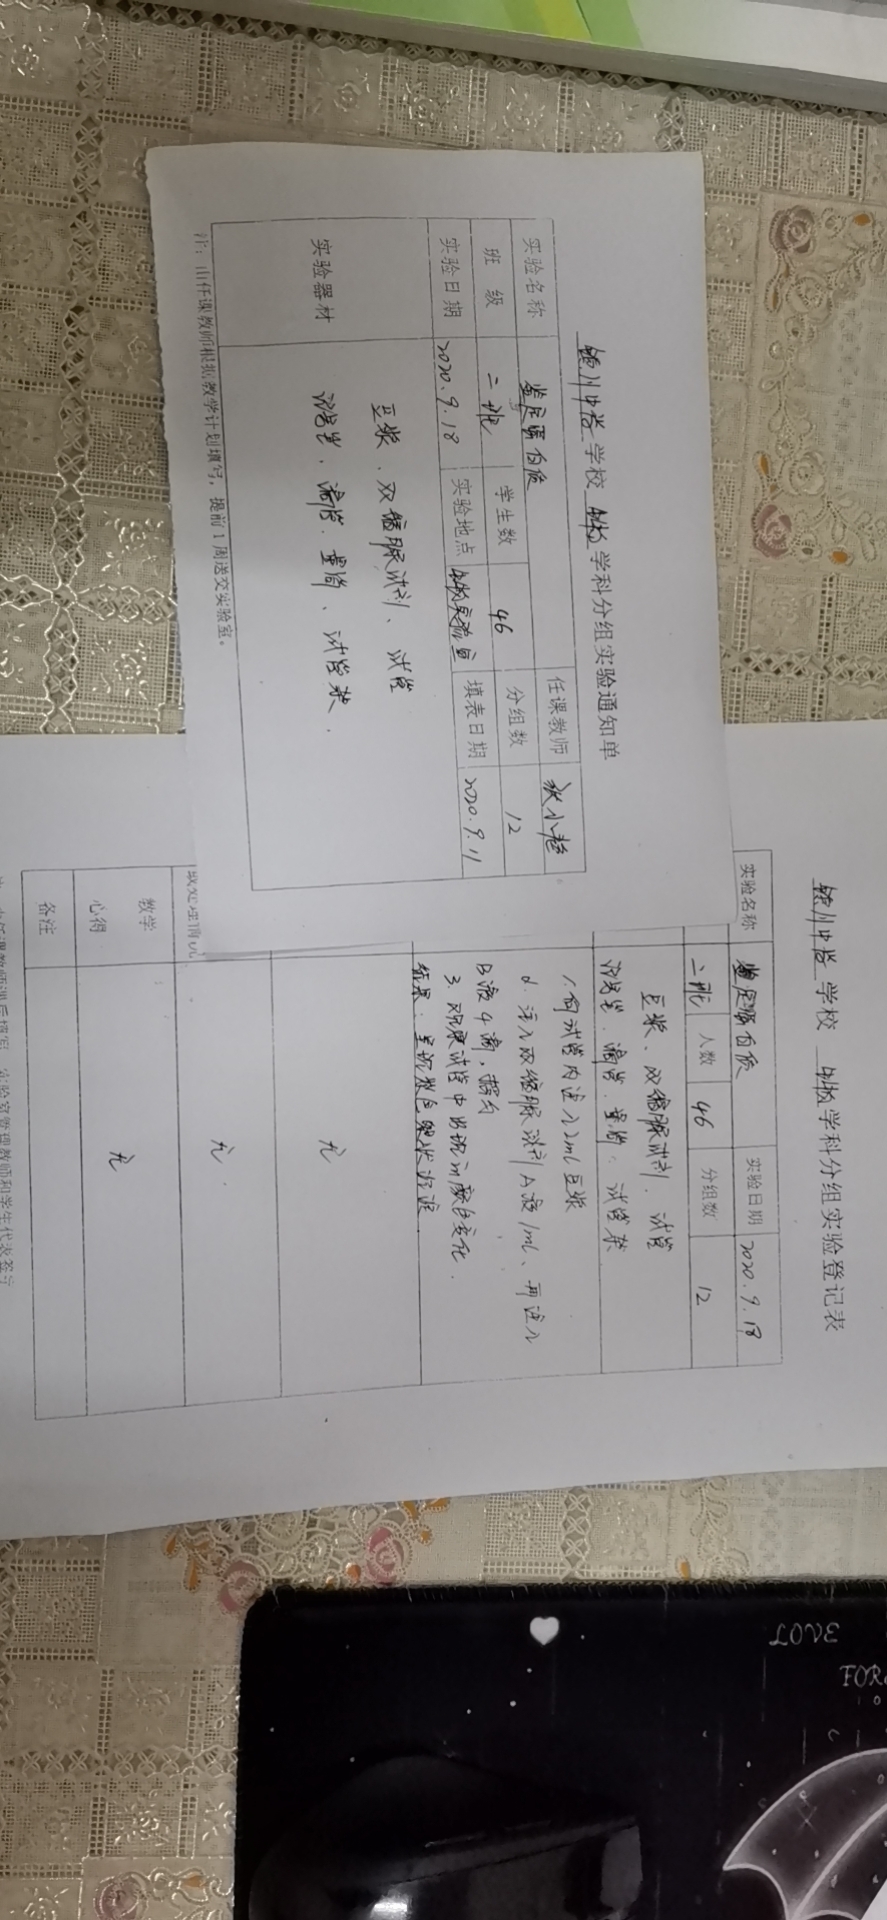 颍川中学 学校 生物 学科分组实验通知单
实验名称 鉴定蛋白质 任课教师
班级 二班 学生数 46 分组数 12
实验日期 2020.9.18 实验地点 生物实验室 填表日期 2020.9.11
实验器材
豆浆、双缩脲试剂、试管
滴管、量筒、试管架.
注：由任课教师根据教学计划填写，提前1周送交实验室。
颍川中学 学校 生物 学科分组实验登记表
实验名称 鉴定蛋白质 实验日期 2020.9.18
二班 人数 46 分组数 12
豆浆、双缩脲试剂、试管
滴管、量筒、试管架
1.向试管内注入2ml豆浆
2.注入双缩脲试剂A液1ml、再注入
B液4滴，摇匀
3.观察试管中出现的颜色变化.
结果：呈现紫色絮状沉淀
无
无
教学
心得
无
备注
LOVE
FOR